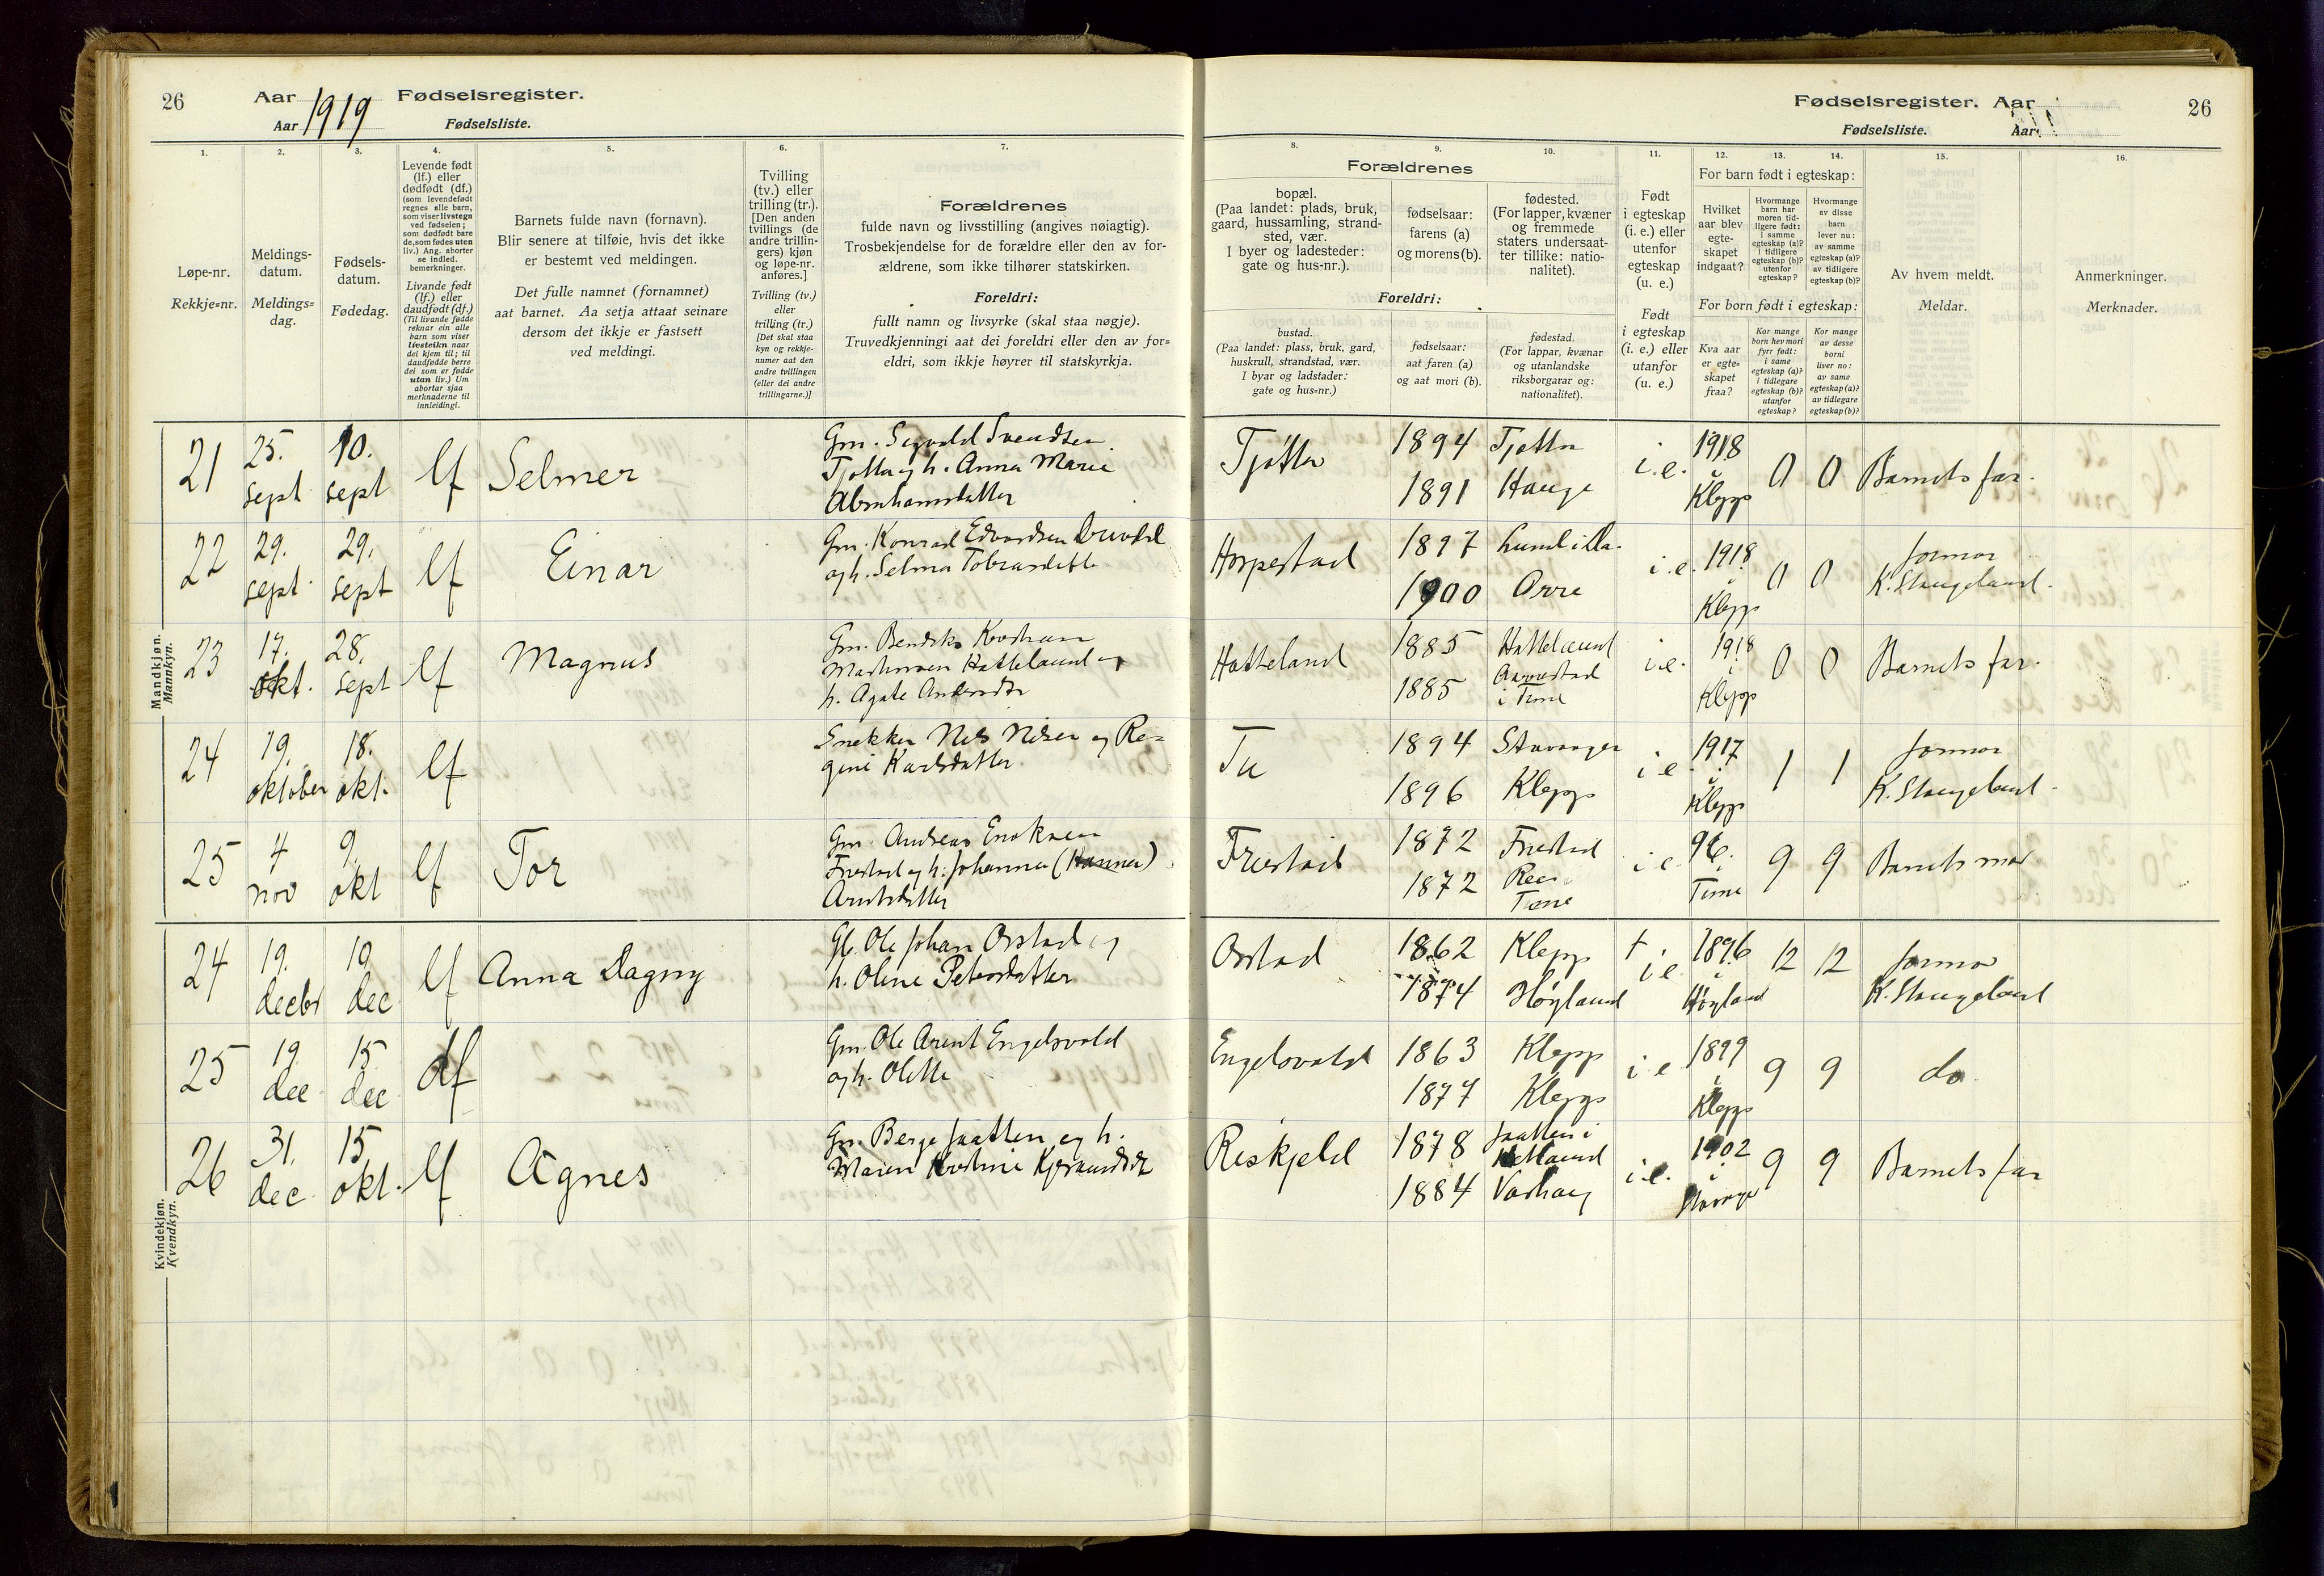 26
Aar 1919 Fødselsregister.
Aar Fødselsliste.
Fødselsregister. Aar
Fødselsliste. Aar
26
1. 2. 3. 4. 5. 6. 7. 8. 9. 10. 11. 12. 13. 14. 15. 16.
Løpe-nr.
Rekkje=nr.
Meldings-
datum.
Meldings=
dag.
Fødsels-
datum.
Fødedag.
Levende født
(lf.) eller
dødfødt (df.)
(som levendefødt
regnes alle barn,
som viser livstegn
ved fødselen;
som dødfødt bare
de, som fødes uten
liv.) Ang. aborter
se indled.
bemerkninger.
Livande født
(lf.) eller
daudfødt (df.)
(Til livande fødde
reknar ein alle
barn som viser
livsteikn naar
dei kjem til; til
daudfødde berre
dei som er fødde
utan liv.) Um
abortar sjaa
merknaderne til
innleidingi.
Barnets fulde navn (fornavn).
Blir senere at tilføie, hvis det ikke
er bestemt ved meldingen.
Det fulle namnet (fornamnet)
aat barnet. Aa setja attaat seinare
dersom det ikkje er fastsett
ved meldingi.
Tvilling
(tv.) eller
trilling (tr.).
[Den anden
tvillings (de
andre trillin-
gers) kjøn
og løpe-nr.
anføres.]
Tvilling (tv.)
eller
trilling (tr.)
[Det skal staa
kyn og rekkje-
numer aat den
andre tvillingen
(eller dei andre
trillingarne.)]
Forældrenes
fulde navn og livsstilling (angives nøiagtig).
Trosbekjendelse for de forældre eller den av for-
ældrene, som ikke tilhører statskirken.
Foreldri:
fullt namn og livsyrke (skal staa nøgje).
Truvedkjenningi aat dei foreldri eller den av for=
eldri, som ikkje høyrer til statskyrkja.
Forældrenes
bopæl.
(Paa landet: plads, bruk,
gaard, hussamling, strand-
sted, vær.
I byer og ladesteder:
gate og hus-nr.).
fødselsaar:
farens (a)
og morens (b).
fødested.
(For lapper, kvæner
og fremmede
staters undersaat-
ter tillike: natio-
nalitet).
Foreldri:
bustad.
(Paa landet: plass, bruk, gard,
huskrull, strandstad, vær.
I byar og ladstader:
gate og hus=nr.)
fødselsaar:
aat faren (a)
og aat mori (b).
fødestad.
(For lappar, kvænar
og utanlandske
riksborgarar og:
nationalitet).
Født
i egteskap
(i. e.) eller
utenfor
egteskap
(u. e.)
Født
i egteskap
(i. e.) eller
utanfor
(u. e.)
For barn født i egteskap:
Hvilket
aar blev
egte-
skapet
indgaat?
Hvormange
barn har
moren tid-
ligere født:
i samme
egteskap (a)?
i tidligere
egteskap (b)?
utenfor
egteskap?
Hvormange
av disse
barn
lever nu:
av samme
egteskap (a)?
av tidligere
egteskap (b)?
For born født i egteskap:
Kva aar
er egte=
skapet
fraa?
Kor mange
born hev mori
fyrr født:
i same
egteskap (a)?
i tidlegare
egteskap (b)?
utanfor
egteskap?
Kor mange
av desse
borni
liver no:
av same
egteskap (a)?
av tidlegare
egteskap (b)?
Av hvem meldt.
Meldar.
Anmerkninger.
Merknader.
Mandkjøn.
Mannkyn.
21 25. sept 10. sept lf Selmer
Gm. Sigvald Svendsen
Tjøtta og h. Anna Marie
Abrahamsdatter
Tjøtta 1894 Tjøtta
1891 Hauge
i.e. 1918 i Klepp 0 0 Barnets far.
22 29. sept. 29. sept lf Einar
Gm. Konrad Edvardsen
og h. Selma
1897
1900 Orre
i.e. 1918 i Klepp 0 0 Jormor
K. Stangeland.
23 17. okt. 28. sept lf Magnus
Gm.
Hatteland og
h. Agate
Hatteland 1885 Hatteland
1885 i Time
i.e. 1918 i Klepp 0 0 Barnets far.
24 19. oktober 18. okt. lf
Snekker Nils Nilsen og Re=
gine Karlsdatter
Tu 1894 Stavanger
1896 Klepp
i e. 1917 i Klepp 1 1 Jormor
K. Stangeland.
25 4 nov 9. okt lf Tor
Gm. Andreas Enoksen
Friestad og h. Johanna (Hanna)
Friestad 1872 Friestad
1872 Time
i e 96. i Time 9 9 Barnets mor
Kvindekjøn.
Kvendkyn.
24 19. decbr 19 dec lf Anna Dagny
Gb. Ole Johan Orstad og
h. Oline Petersdatter
Orstad 1862 Klepp
1874 Høyland
+ i e 1896 i Høyland 12 12 Jormor
K. Stangeland
25 19. dec 15 dec df
Gm. Ole Arent Engelsvold
og h. Olette
Engelsvold 1863 Klepp
1877 Klepp
i e 1899 i Klepp 9 9 do
26 31. dec 15 okt. lf Agnes
Gm. Berge Jaatten og h.
Maren
Reskjeld 1878 Jaatten i
Hetland
1884 Varhaug
i.e. 1902 i 9 9 Barnets far